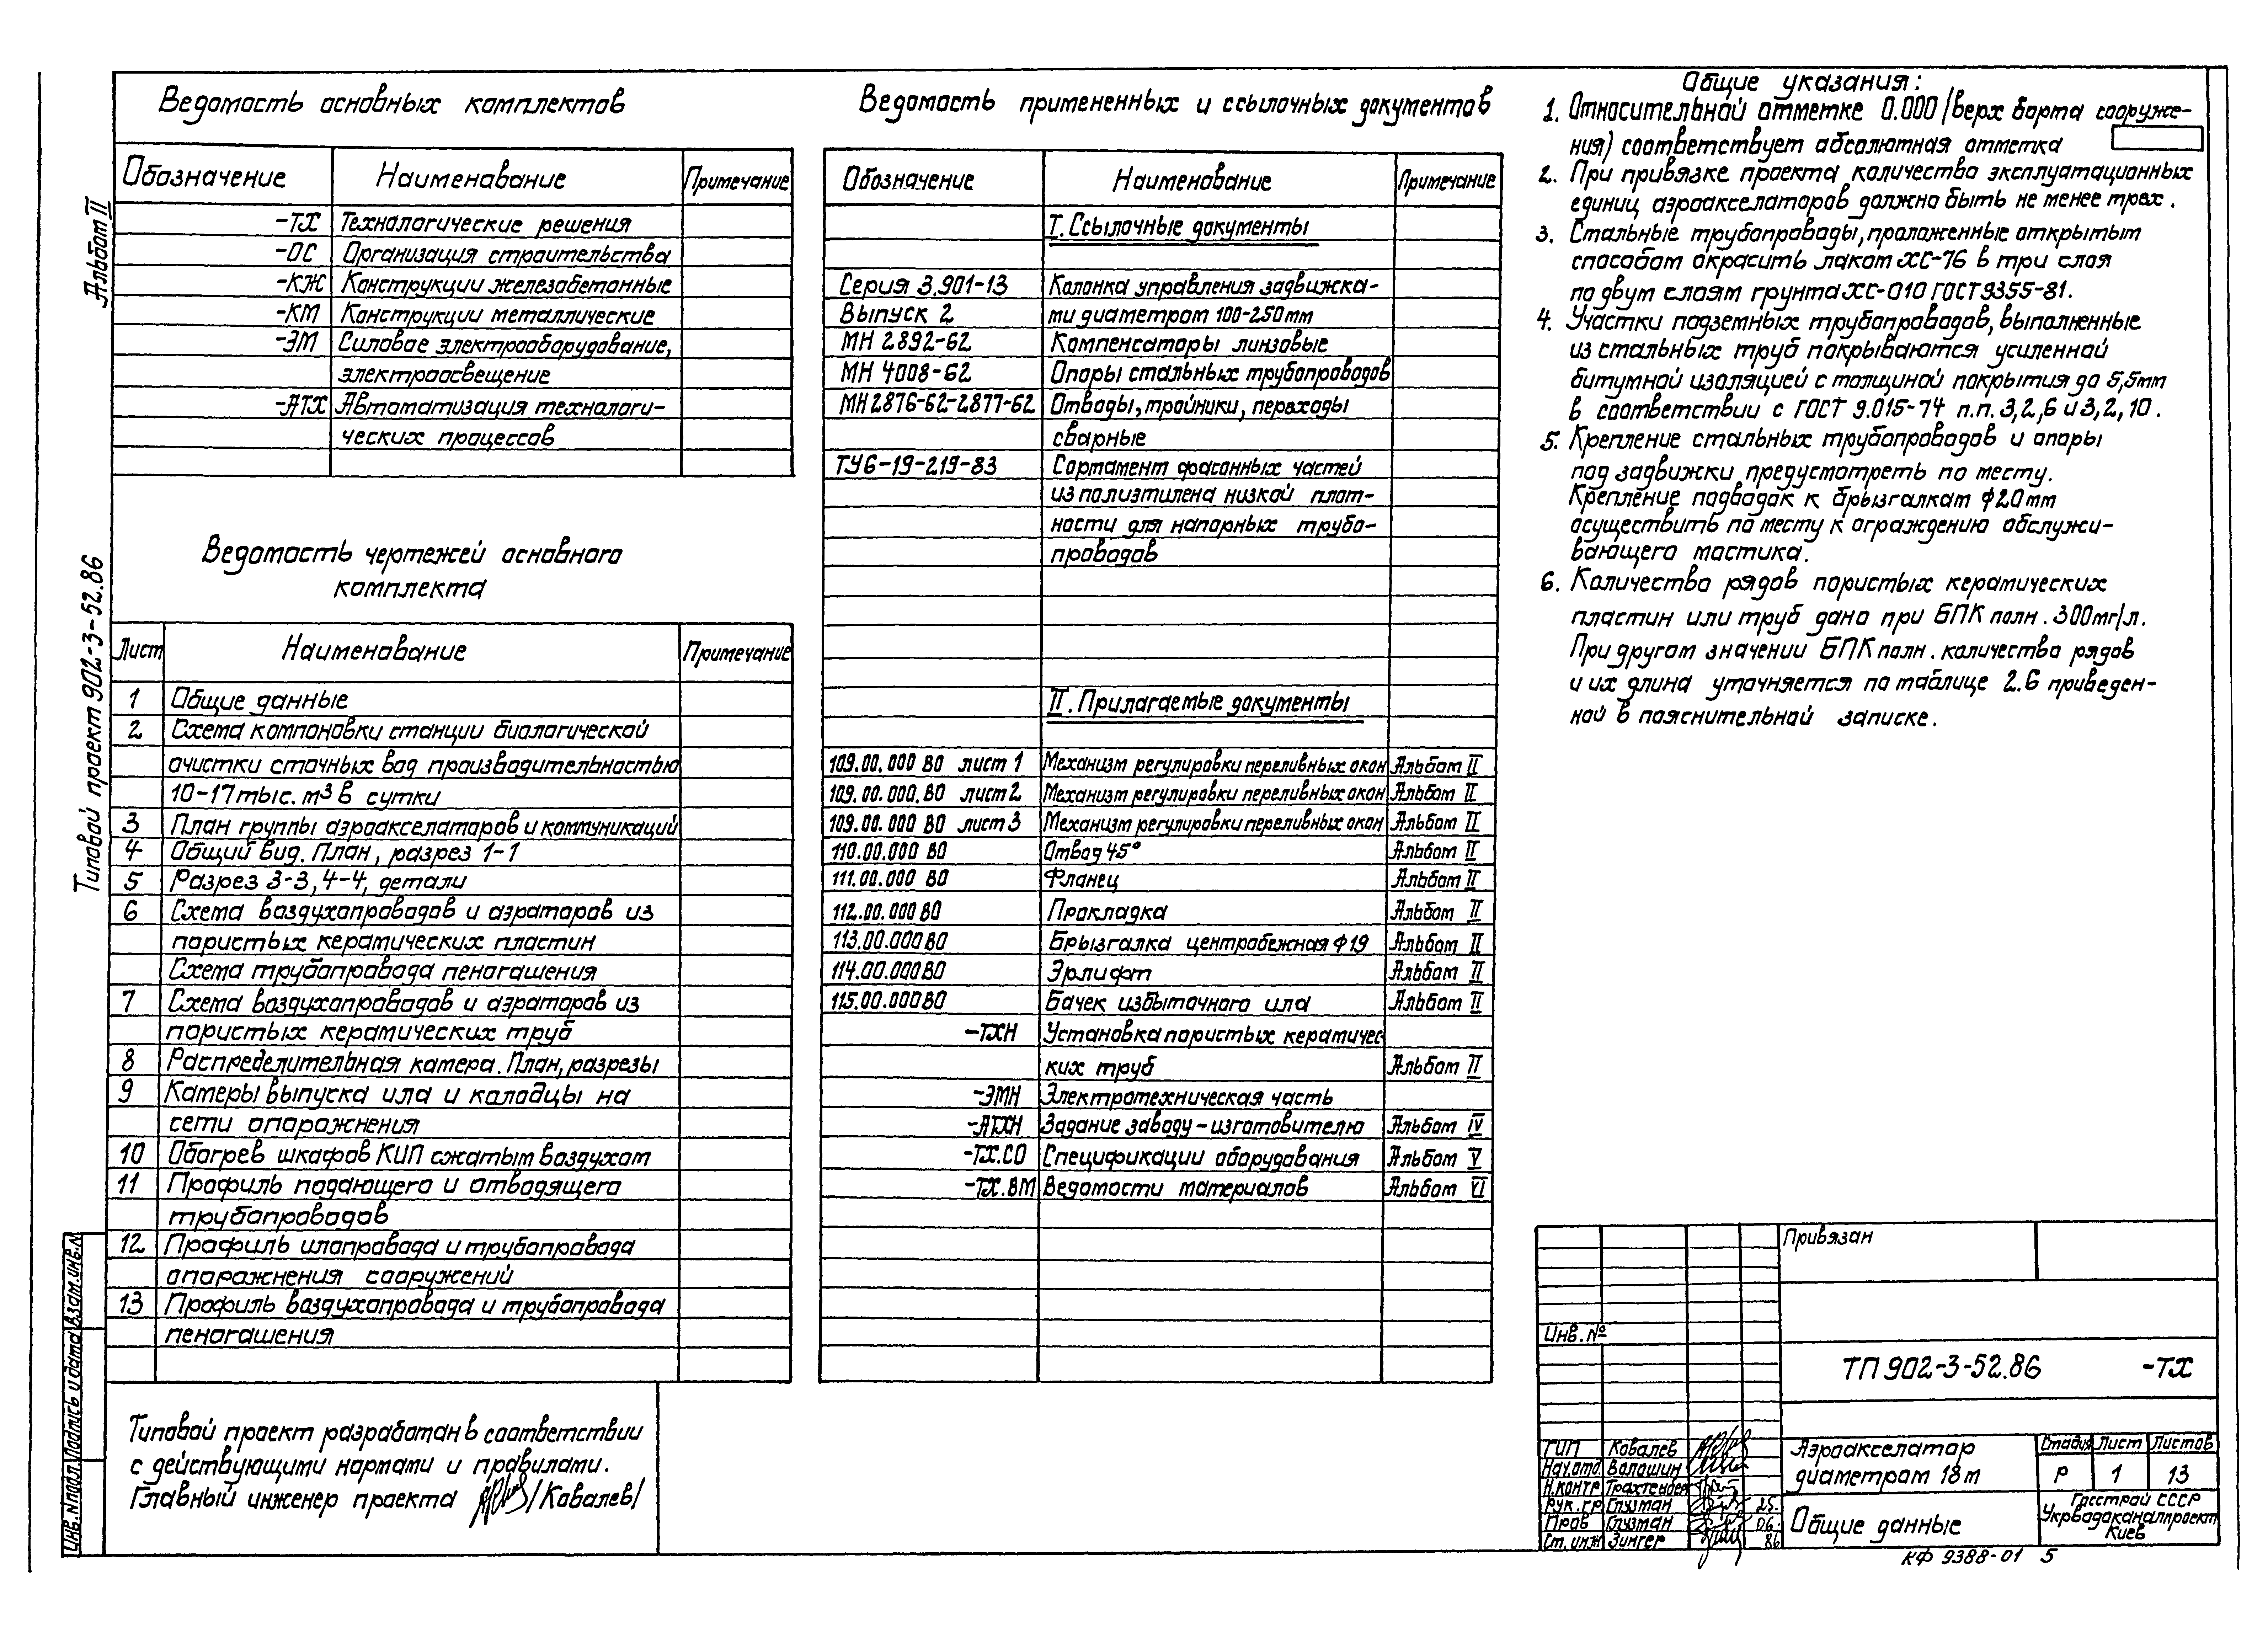 Альбом II
Типовой проект 902-3-52.86
Ведомость основных комплектов
Обозначение Наименование Примечание
-ТХ Технологические решения
-ОС Организация строительства
-КЖ Конструкции железобетонные
-КМ Конструкции металлические
-ЭМ Силовое электрооборудование,
электроосвещение
-АТХ Автоматизация технологи-
ческих процессов
Ведомость чертежей основного
комплекта
Лист Наименование Примечание
1 Общие данные
2 Схема компоновки станции биологической
очистки сточных вод производительностью
10-17 тыс. м³ в сутки
3 План группы аэроакселаторов и коммуникаций
4 Общий вид. План, разрез 1-1
5 Разрез 3-3, 4-4, детали
6 Схема воздухопроводов и аэраторов из
пористых керамических пластин
Схема трубопровода пеногашения
7 Схема воздухопроводов и аэраторов из
пористых керамических труб
8 Распределительная камера. План, разрезы
9 Камеры выпуска ила и колодцы на
сети опорожнения
10 Обогрев шкафов КИП сжатым воздухом
11 Профиль подающего и отводящего
трубопроводов
12 Профиль илопровода и трубопровода
опорожнения сооружений
13 Профиль воздухопровода и трубопровода
пеногашения
Типовой проект разработан в соответствии
с действующими нормами и правилами.
Главный инженер проекта /Ковалев/
Ведомость примененных и ссылочных документов
Обозначение Наименование Примечание
I. Ссылочные документы
Серия 3.901-13 Колонка управления задвижка-
Выпуск 2 ми диаметром 100-250мм
МН 2892-62 Компенсаторы линзовые
МН 4008-62 Опоры стальных трубопроводов
МН 2876-62-2877-62 Отводы, тройники, переходы
сварные
ТУ6-19-219-83 Сортамент фасонных частей
из полиэтилена низкой плот-
ности для напорных трубо-
проводов
II. Прилагаемые документы
109.00.000 ВО лист 1 Механизм регулировки переливных окон Альбом II
109.00.000. ВО лист 2 Механизм регулировки переливных окон Альбом II
109.00.000 ВО лист 3 Механизм регулировки переливных окон Альбом II
110.00.000 ВО Отвод 45° Альбом II
111.00.000 ВО Фланец Альбом II
112.00.000 ВО Прокладка Альбом II
113.00.000 ВО Брызгалка центробежная ф19 Альбом II
114.00.000 ВО Эрлифт Альбом II
115.00.000 ВО Бачек избыточного ила Альбом II
-ТХН Установка пористых керамичес-
ких труб Альбом II
-ЭМН Электротехническая часть
-АТХН Задание заводу-изготовителю Альбом IV
-ТХ.СО Спецификации оборудования Альбом V
-ТХ.ВМ Ведомости материалов Альбом VI
Общие указания:
1. Относительной отметке 0.000 /верх борта сооруже-
ния) соответствует абсолютная отметка
2. При привязке проекта количество эксплуатационных
единиц аэроакселаторов должно быть не менее трех.
3. Стальные трубопроводы, проложенные открытым
способом окрасить лаком ХС-76 в три слоя
по двум слоям грунта ХС-010 ГОСТ 9355-81.
4. Участки подземных трубопроводов, выполненные
из стальных труб покрываются усиленной
битумной изоляцией с толщиной покрытия до 5,5мм
в соответствии с ГОСТ 9.015-74 п.п. 3,2,6 и 3,2,10.
5. Крепление стальных трубопроводов и опоры
под задвижки предусмотреть по месту.
Крепление подводок к брызгалкам ф20мм
осуществить по месту к ограждению обслужи-
вающего мостика.
6. Количество рядов пористых керамических
пластин или труб дано при БПК полн. 300мг/л.
При другом значении БПК полн. количество рядов
и их длина уточняется по таблице 2.6 приведен-
ной в пояснительной записке.
Привязан
Инв. №
ТП 902-3-52.86 -ТХ
ГИП Ковалев
Нач.отд. Волошин
Н.контр.
Рук.гр. Глузман 25.
Пров Глузман 06.
Ст.инж Зингер 86
Аэроакселатор
диаметром 18м
Стадия Лист Листов
Р 1 13
Общие данные
Госстрой СССР
Укрводоканалпроект
Киев
КФ 9388-01 5
Инв. № подл. Подпись и дата Взам.инв.№